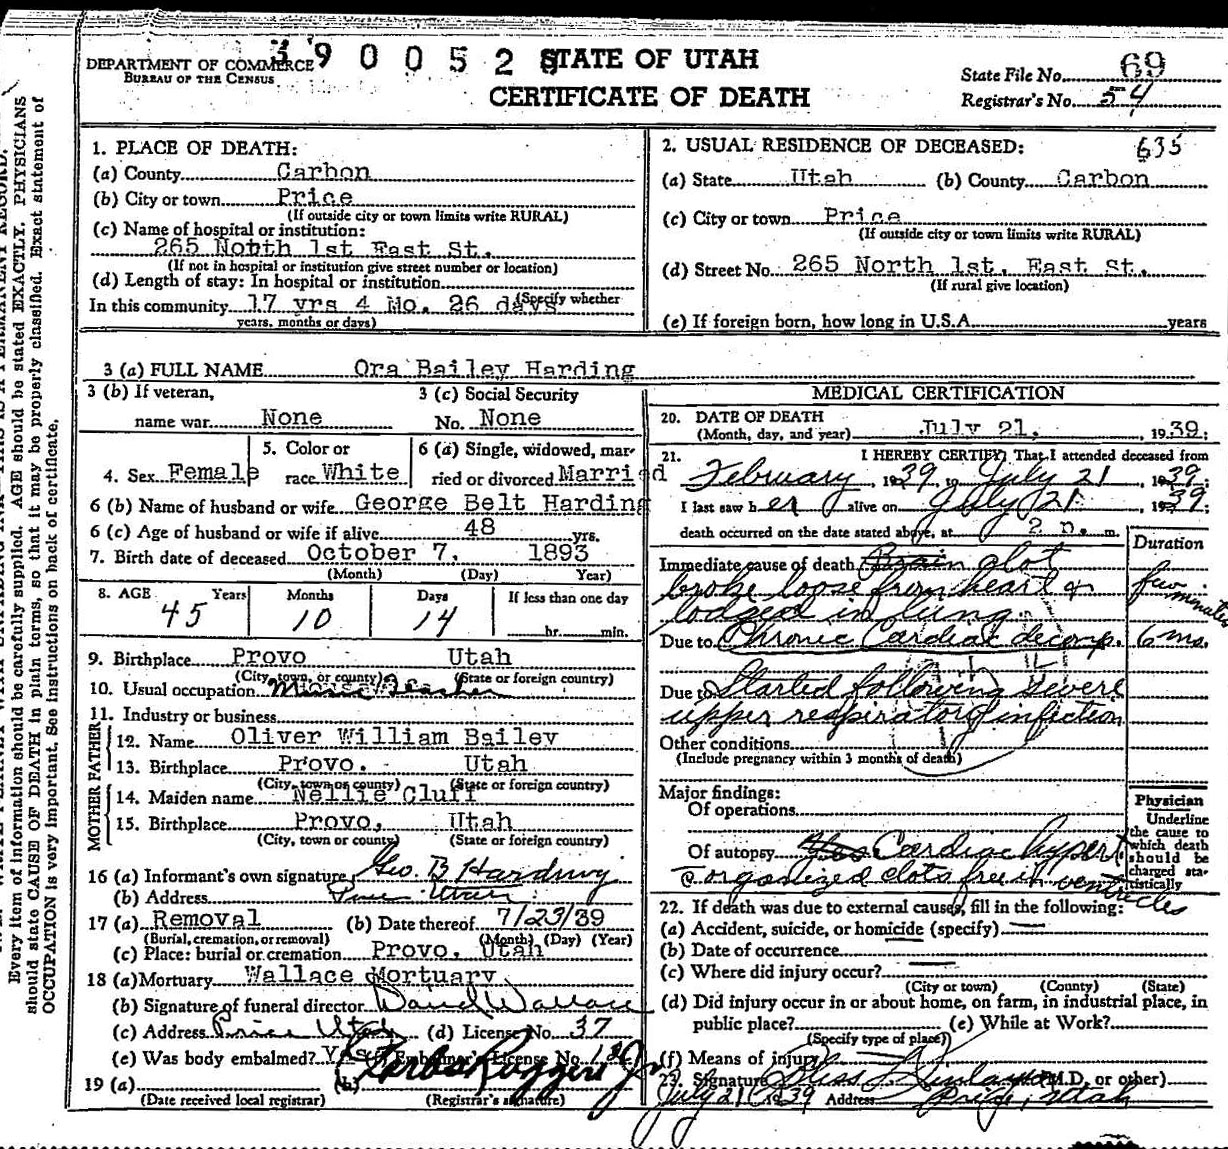 390052
DEPARTMENT OF COMMERCE
BUREAU OF THE CENSUS
STATE OF UTAH
CERTIFICATE OF DEATH
State File No. 69
Registrar's No. 54
Every item of information should be carefully supplied. AGE should be stated EXACTLY. PHYSICIANS
should state CAUSE OF DEATH in plain terms, so that it may be properly classified. Exact statement of
OCCUPATION is very important. See instructions on back of certificate.
1. PLACE OF DEATH:
(a) County Carbon
(b) City or town Price
(If outside city or town limits write RURAL)
(c) Name of hospital or institution:
265 North 1st East St.
(If not in hospital or institution give street number or location)
(d) Length of stay: In hospital or institution
(Specify whether
In this community 17 yrs 4 Mo. 26 days
years, months or days)
2. USUAL RESIDENCE OF DECEASED: 635
(a) State Utah (b) County Carbon
(c) City or town Price
(If outside city or town limits write RURAL)
(d) Street No. 265 North 1st. East St.
(If rural give location)
(e) If foreign born, how long in U.S.A. years
3 (a) FULL NAME Ora Bailey Harding
3 (b) If veteran,
name war None
3 (c) Social Security
No. None
4. Sex Female
5. Color or
race White
6 (a) Single, widowed, mar-
ried or divorced Married
6 (b) Name of husband or wife George Belt Harding
6 (c) Age of husband or wife if alive 48 yrs.
7. Birth date of deceased October 7, 1893
(Month) (Day) Year)
8. AGE Years Months Days If less than one day
45 10 14 hr. min.
9. Birthplace Provo Utah
(City, town, or county) (State or foreign country)
10. Usual occupation Music Teacher
11. Industry or business
FATHER
12. Name Oliver William Bailey
13. Birthplace Provo. Utah
(City, town or county) (State or foreign country)
MOTHER
14. Maiden name Nellie Cluff
15. Birthplace Provo, Utah
(City, town or county) (State or foreign country)
16 (a) Informant's own signature Geo. B Harding
(b) Address Price Utah
17 (a) Removal (b) Date thereof 7/23/39
(Burial, cremation, or removal) (Month) (Day) (Year)
(c) Place: burial or cremation Provo, Utah
18 (a) Mortuary Wallace Mortuary
(b) Signature of funeral director David Wallace
(c) Address Price Utah (d) License No. 37
(e) Was body embalmed? Yes (f) Embalmer's License No.
19 (a) (b)
(Date received local registrar) (Registrar's signature)
MEDICAL CERTIFICATION
20. DATE OF DEATH
(Month, day, and year) July 21, 1939;
21. I HEREBY CERTIFY, That I attended deceased from
February, 1939, to July 21, 1939;
I last saw her alive on July 21, 1939;
death occurred on the date stated above, at 2 p. m.
Duration
Immediate cause of death Brain clot
broke loose from heart & few
lodged in lung. minutes
Due to Chronic Cardiac decomp. 6 mo.
Due to Started following severe
upper respiratory infection
Other conditions
(Include pregnancy within 3 months of death)
Major findings:
Of operations
Of autopsy Yes Cardiac hypert
c organized clots free in ventricles
Physician
Underline
the cause to
which death
should be
charged sta-
tistically
22. If death was due to external causes, fill in the following:
(a) Accident, suicide, or homicide (specify)
(b) Date of occurrence
(c) Where did injury occur?
(City or town) (County) (State)
(d) Did injury occur in or about home, on farm, in industrial place, in
public place? (e) While at Work?
(Specify type of place)
(f) Means of injury
23. Signature (M.D. or other)
July 21 1939 Address Price, Utah